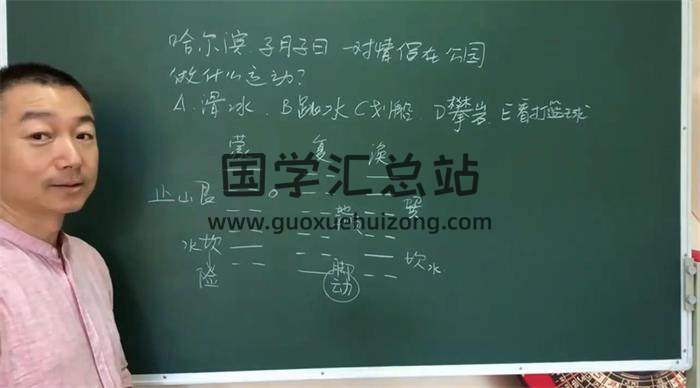 哈尔滨 子月子日 一对情侣在公园
做什么运动?
A.滑冰. B跳水 C划船. D攀岩. E看打篮球
蒙 复 涣
国学汇总站
www.guoxuehuizong.com
止山艮 巽
水坎 坎水
险 脚
动